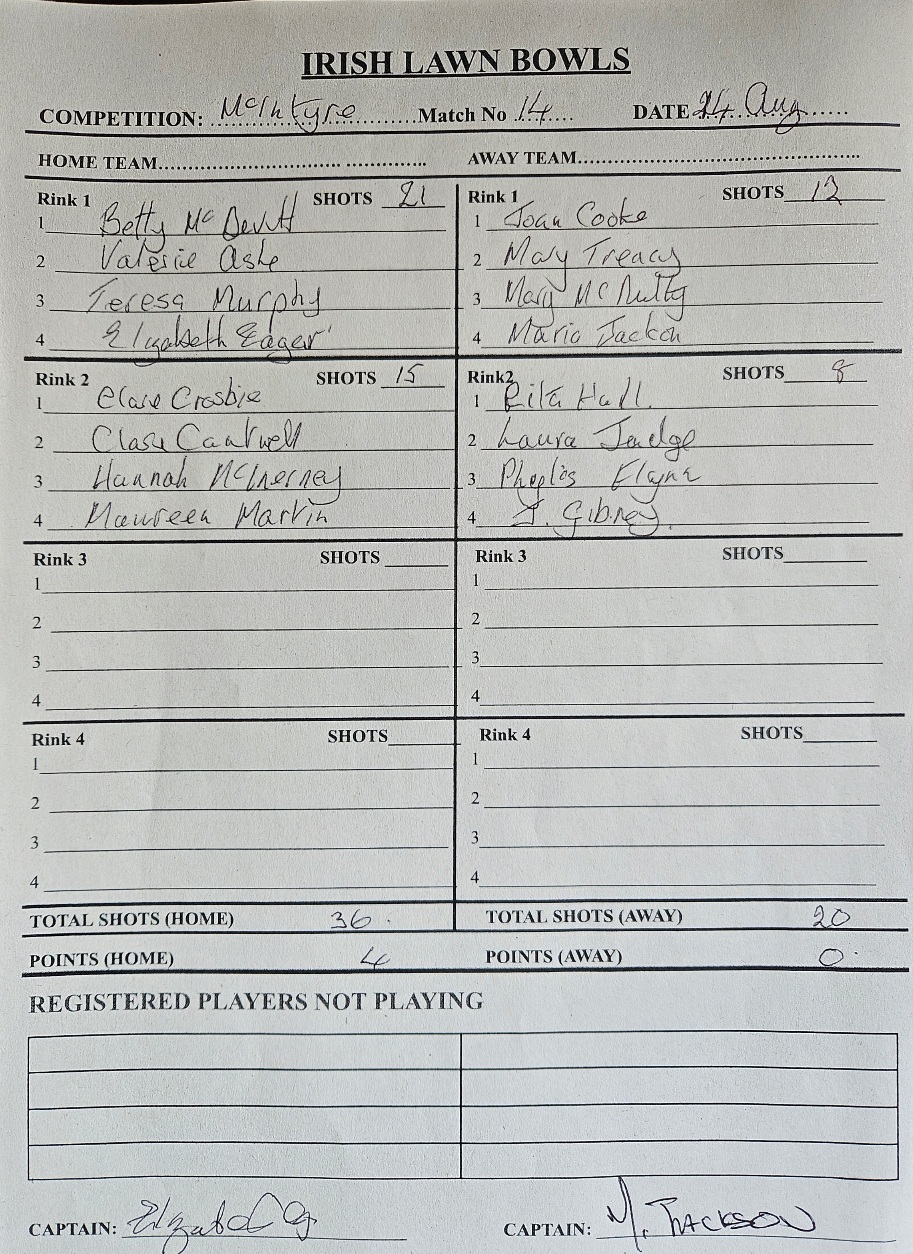 IRISH LAWN BOWLS
COMPETITION: McIntyre Match No 14 DATE 24 Aug
HOME TEAM AWAY TEAM
Rink 1 SHOTS 21 Rink 1 SHOTS 12
1 Betty McDevitt 1 Joan Cooke
2 Valerie Ashe 2 Mary Treacy
3 Teresa Murphy 3 Mary McNulty
4 Elizabeth Eager 4 Maria Jackson
Rink 2 SHOTS 15 Rink2 SHOTS 8
1 Clare Crosbie 1 Rita Hall.
2 Clare Cantwell 2 Laura Judge
3 Hannah McInerney 3 Phyllis Flynn
4 Maureen Martin 4 J. Gibney.
Rink 3 SHOTS Rink 3 SHOTS
1 1
2 2
3 3
4 4
Rink 4 SHOTS Rink 4 SHOTS
1 1
2 2
3 3
4 4
TOTAL SHOTS (HOME) 36 TOTAL SHOTS (AWAY) 20
POINTS (HOME) 4 POINTS (AWAY) 0
REGISTERED PLAYERS NOT PLAYING
CAPTAIN: CAPTAIN: M. JACKSON